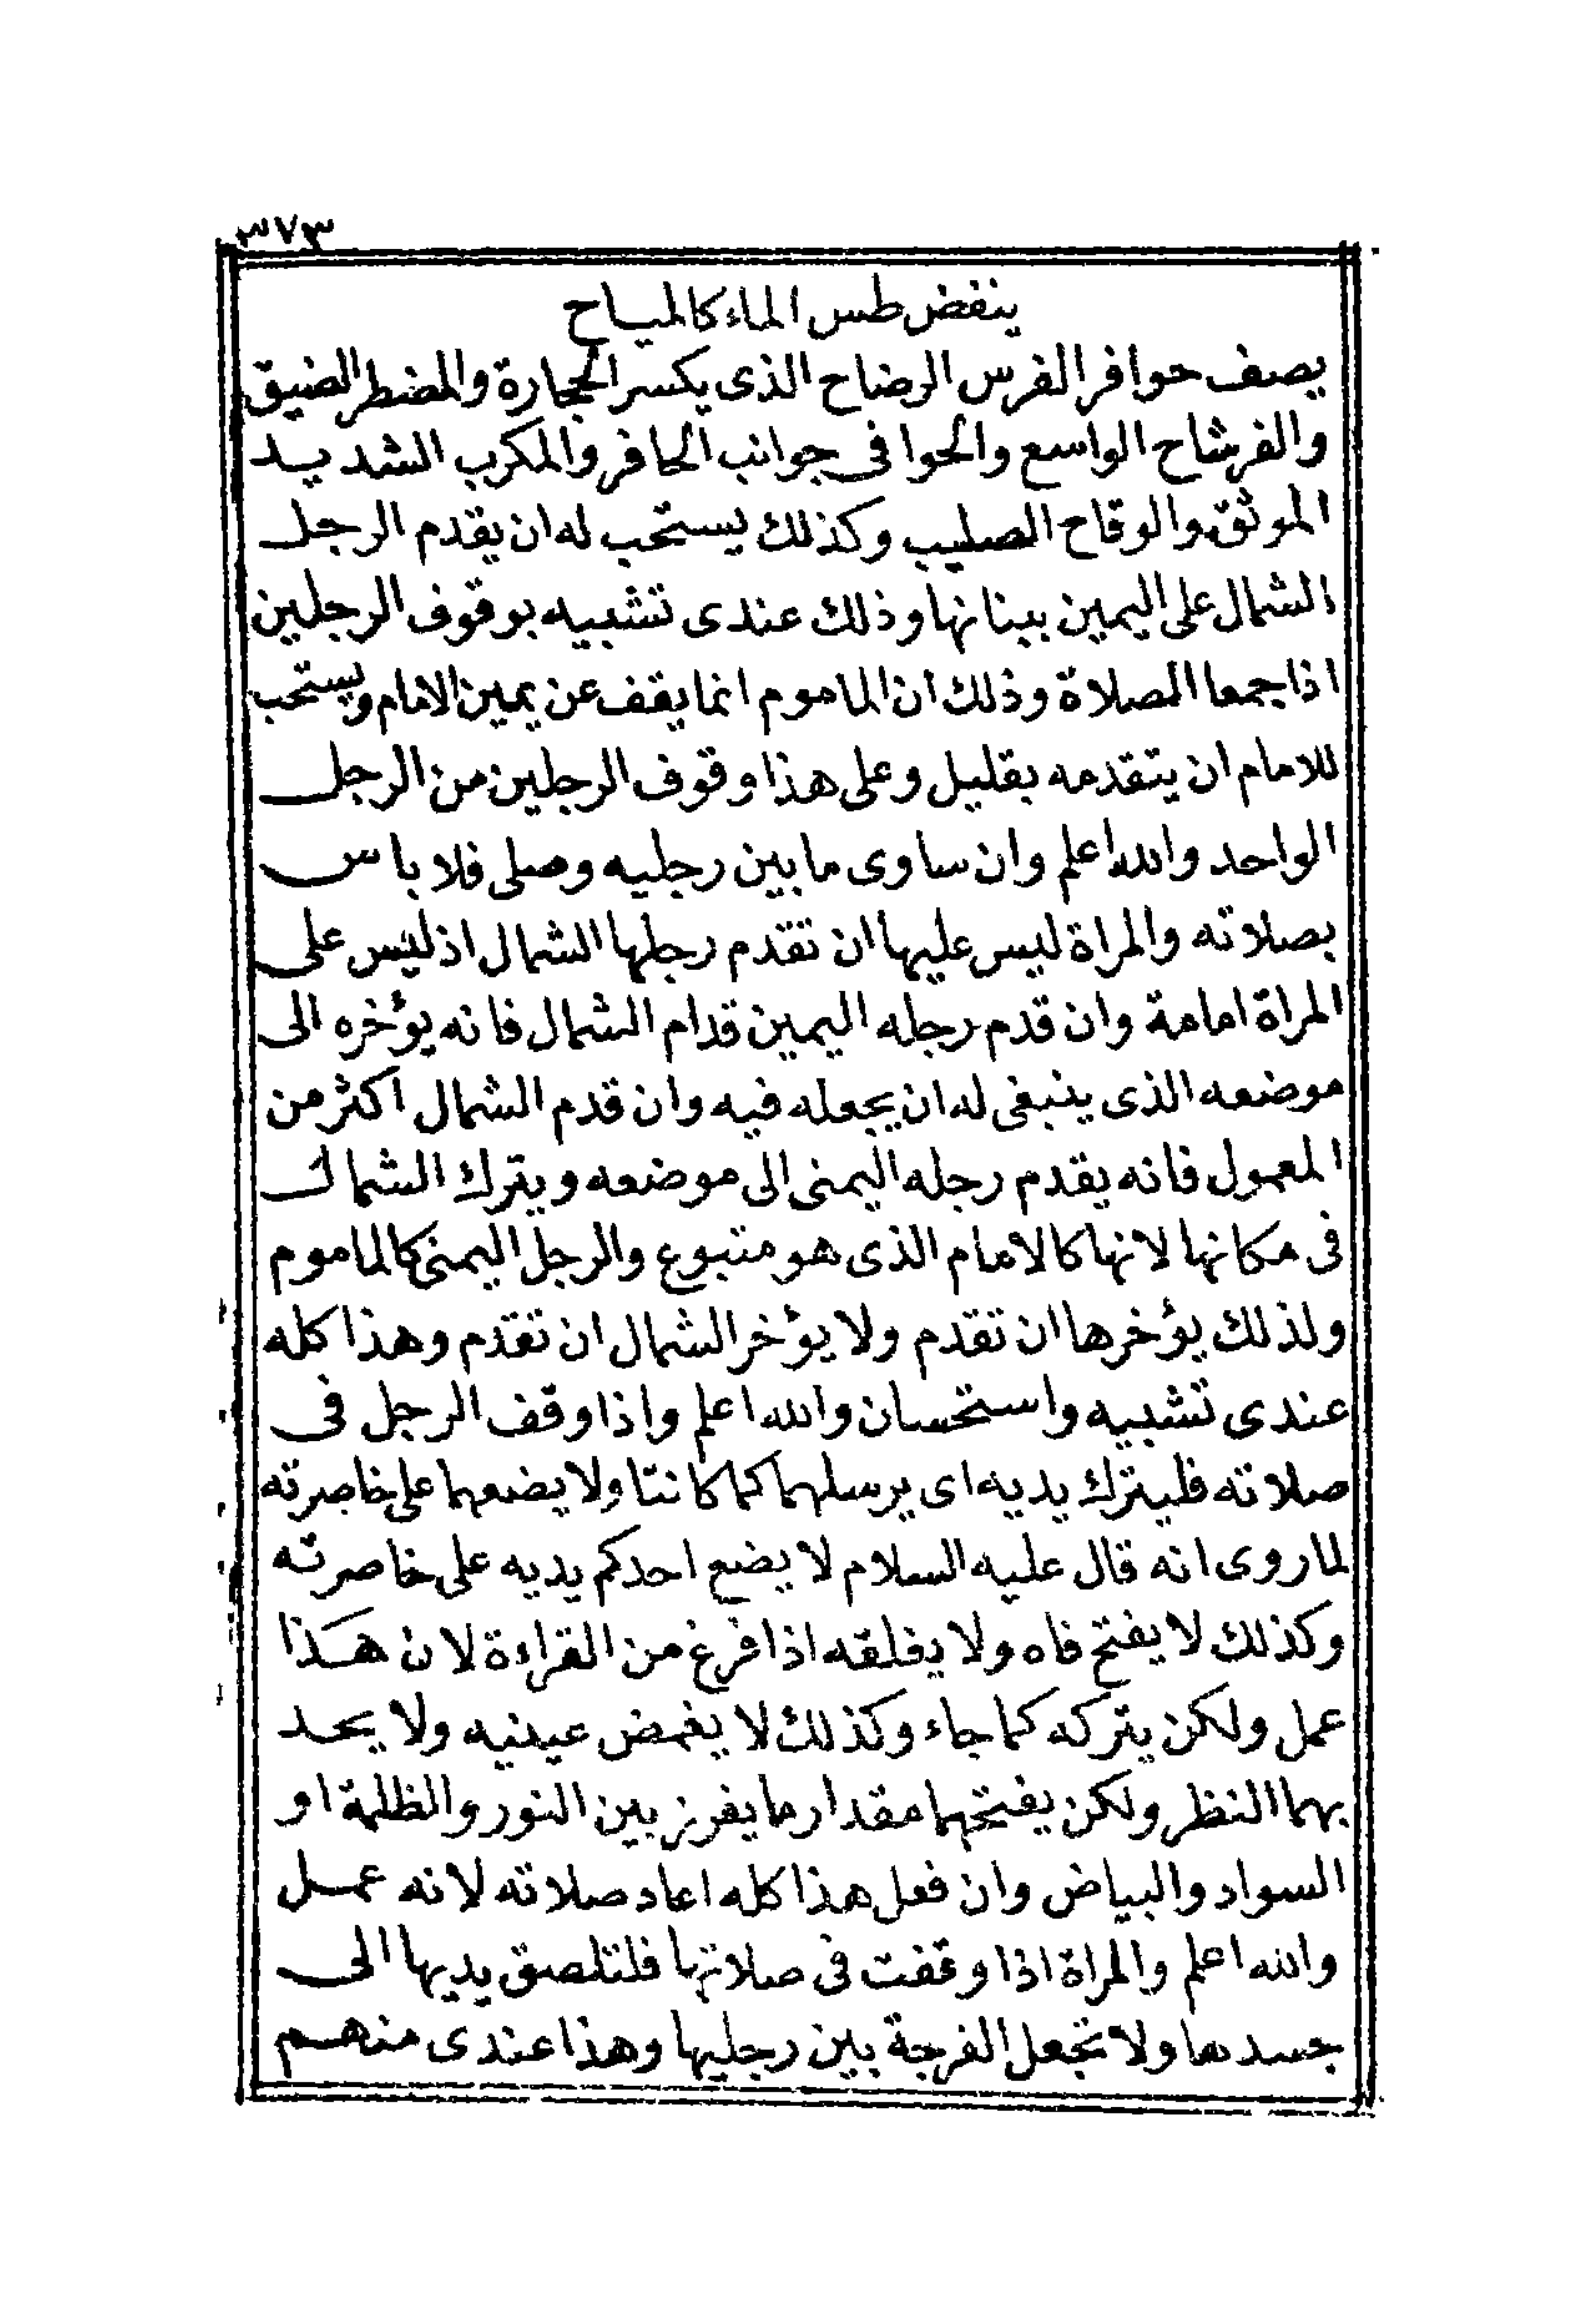 ٣٧٣
ينفض طس الماء كالمياح
يصف حوافر الفرس الرضاح الذى يكسر الحجارة والمضطر الضيق
والفرشاح الواسع والحوا فى جوانب الحافر والمكرب الشديد
الموثق والوقاح الصليب وكذلك يستحب له ان يقدم الرجل
الشمال على اليمين ببنانها وذلك عندى تشبيه بوقوف الرجلين
اذا جمعا الصلاة وذلك ان الماموم انما يقف عن يمين الامام ويستحب
للامام ان يتقدمه بقليل وعلى هذا وقوف الرجلين من الرجل
الواحد والله اعلم وان ساوى ما بين رجليه وصلى فلا باس
بصلاته والمراة ليس عليها ان تقدم رجلها الشمال اذ ليس على
المراة امامة وان قدم رجله اليمين قدام الشمال فانه يؤخره الى
موضعه الذى ينبغى له ان يجعله فيه وان قدم الشمال اكثر من
المعمول فانه يقدم رجله اليمنى الى موضعه ويترك الشمال
فى مكانها لانها كالامام الذى هو متبوع والرجل اليمنى كالماموم
ولذلك يؤخرها ان تقدم ولا يؤخر الشمال ان تقدم وهذا كله
عندى تشبيه واستحسان والله اعلم واذا وقف الرجل فى
صلاته فليترك يديه اى يرسلهما كما كانتا ولا يضعهما على خاصرته
لما روى انه قال عليه السلام لا يضع احدكم يديه على خاصرته
وكذلك لا يفتح فاه ولا يغلقه اذا فرغ من القراءة لان هذا
عمل ولكن يتركه كما جاء وكذلك لا يغمض عينيه ولا يحد
بهما النظر ولكن يفتحهما مقدار ما يفرز بين النور والظلمة او
السواد والبياض وان فعل هذا كله اعاد صلاته لانه عمل
والله اعلم والمراة اذا وقفت فى صلاتها فلتلصق يديها الى
جسدها ولا تجعل الفرجة بين رجليها وهذا عندى منهم